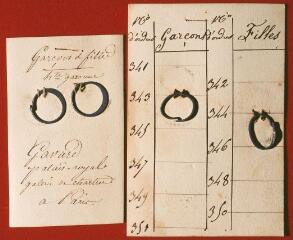 Garçons et filles
Gavard
palais-royal
galerie de chartres
à Paris
Nos
d'ordre
Garçons
Nos
d'ordre
Filles
341
342
343
344
345
346
347
348
349
350
351